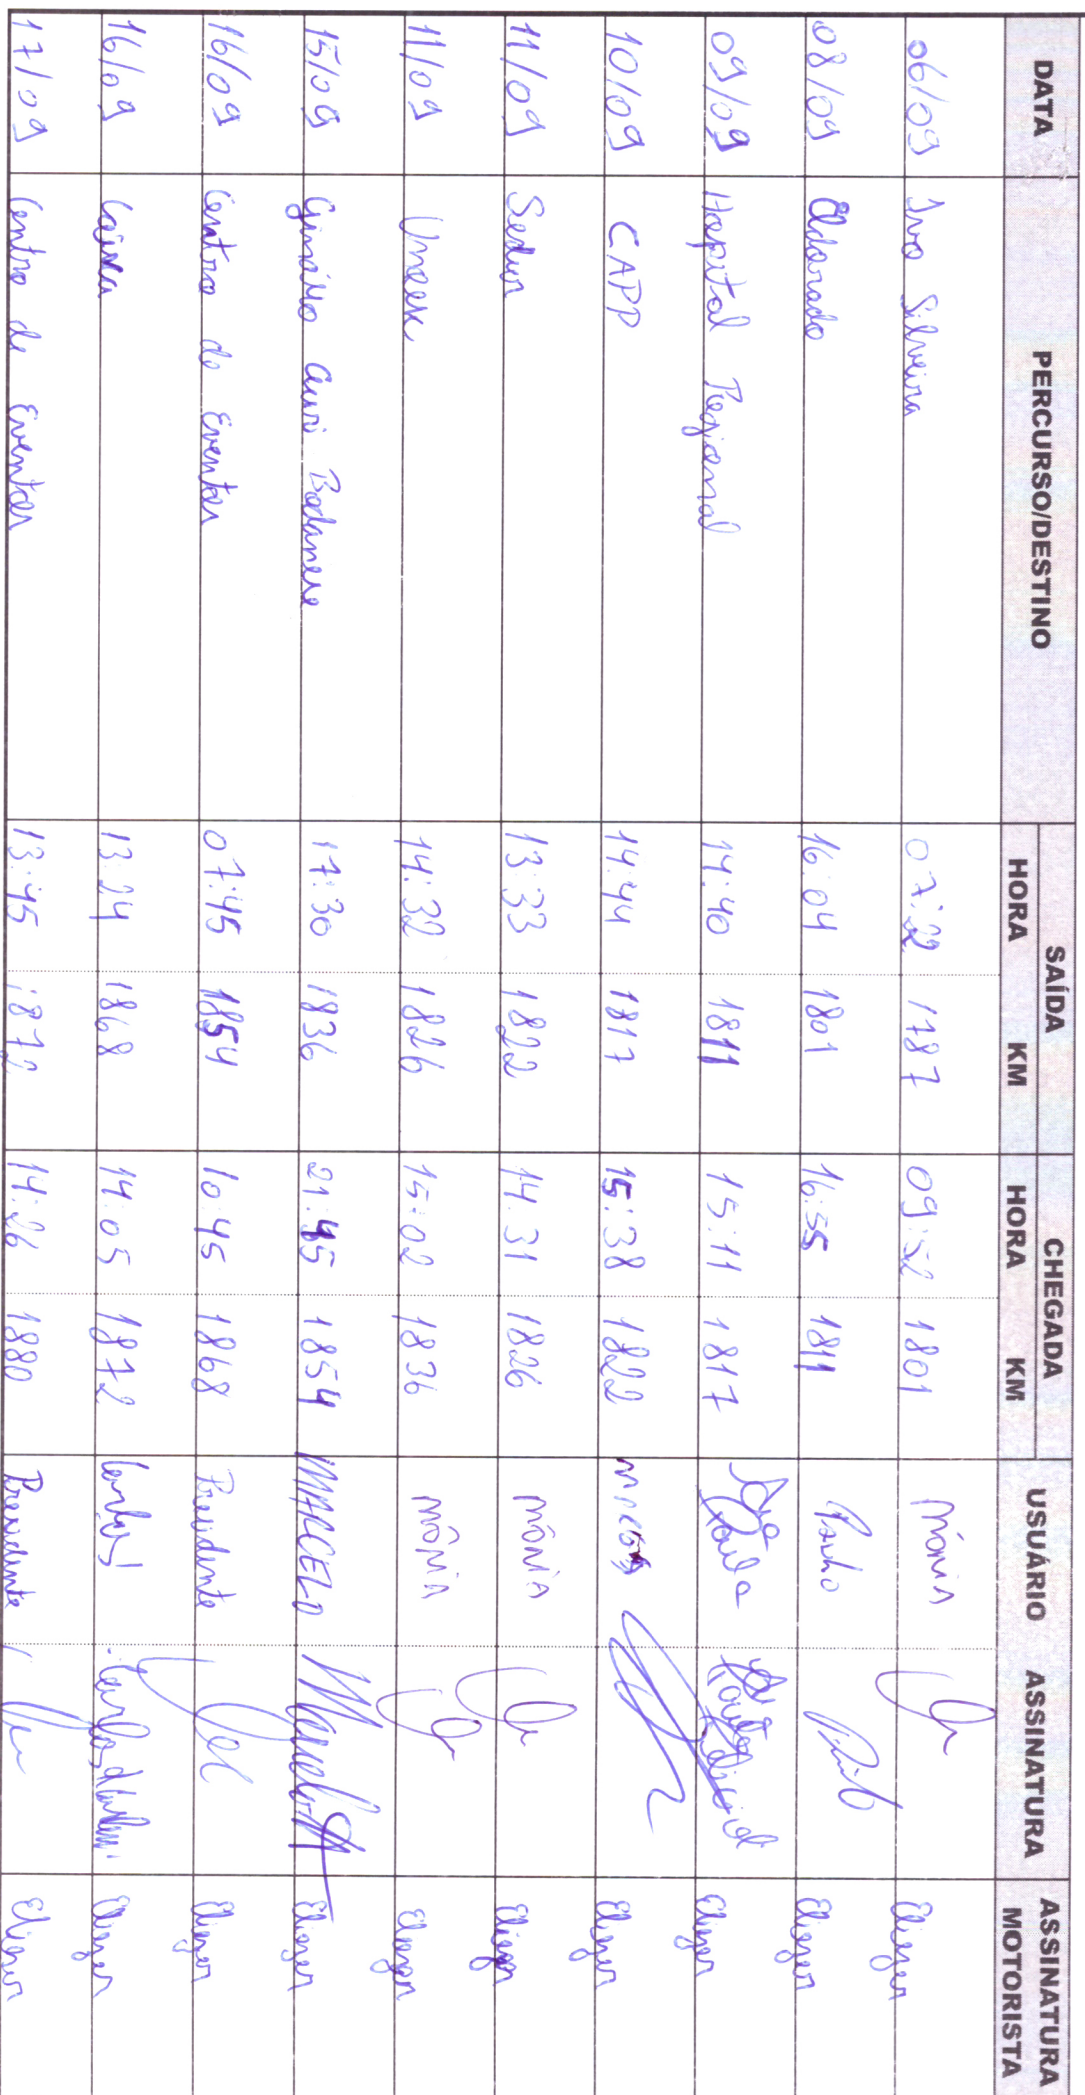 DATA PERCURSO/DESTINO SAÍDA CHEGADA USUÁRIO ASSINATURA ASSINATURA MOTORISTA
HORA KM HORA KM
06/09 Ivo Silveira 07:22 1787 09:52 1801 Mônia Eliezer
08/09 Eldorado 16:04 1801 16:35 1811 Eliezer
09/09 Hospital Regional 14:40 1811 15:11 1817 Paula Eliezer
10/09 CAPP 14:44 1817 15:38 1822 Marcos Eliezer
11/09 Sedur 13:33 1822 14:31 1826 Mônia Eliezer
11/09 Unoesc 14:32 1826 15:02 1836 Mônia Eliezer
15/09 Ginásio Auri Bodanese 17:30 1836 21:45 1854 MARCELO Eliezer
16/09 Centro de Eventos 07:45 1854 10:45 1868 Presidente Eliezer
16/09 Caixa 13:24 1868 14:05 1872 Carlos Eliezer
17/09 Centro de Eventos 13:45 1872 14:26 1880 Presidente Eliezer